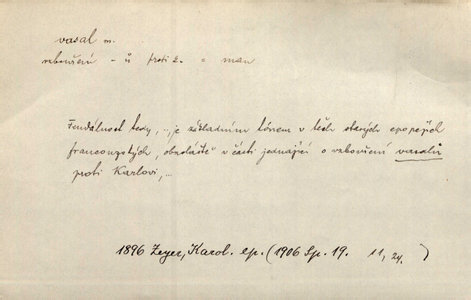 vasal m.
vzbouření - ů proti k. = man
Feudálnost tedy, .., je základním tónem v těch starých epopejích
francouzských, obzvláště v části jednající o vzbouření vasalů
proti Karlovi, ...
1896 Zeyer, Karol. ep. (1906 Sp. 19. 11, 24.)